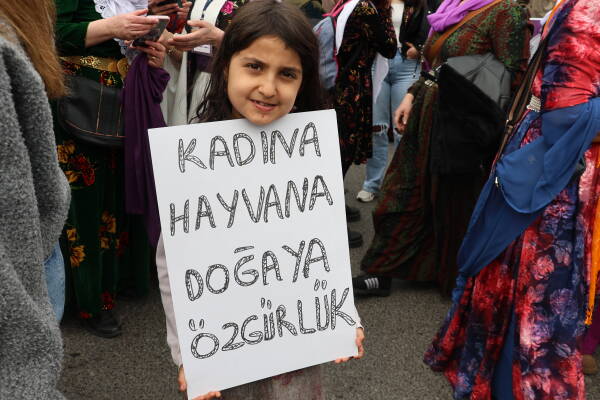 KADINA
HAYVANA
DOĞAYA
ÖZGÜRLÜK